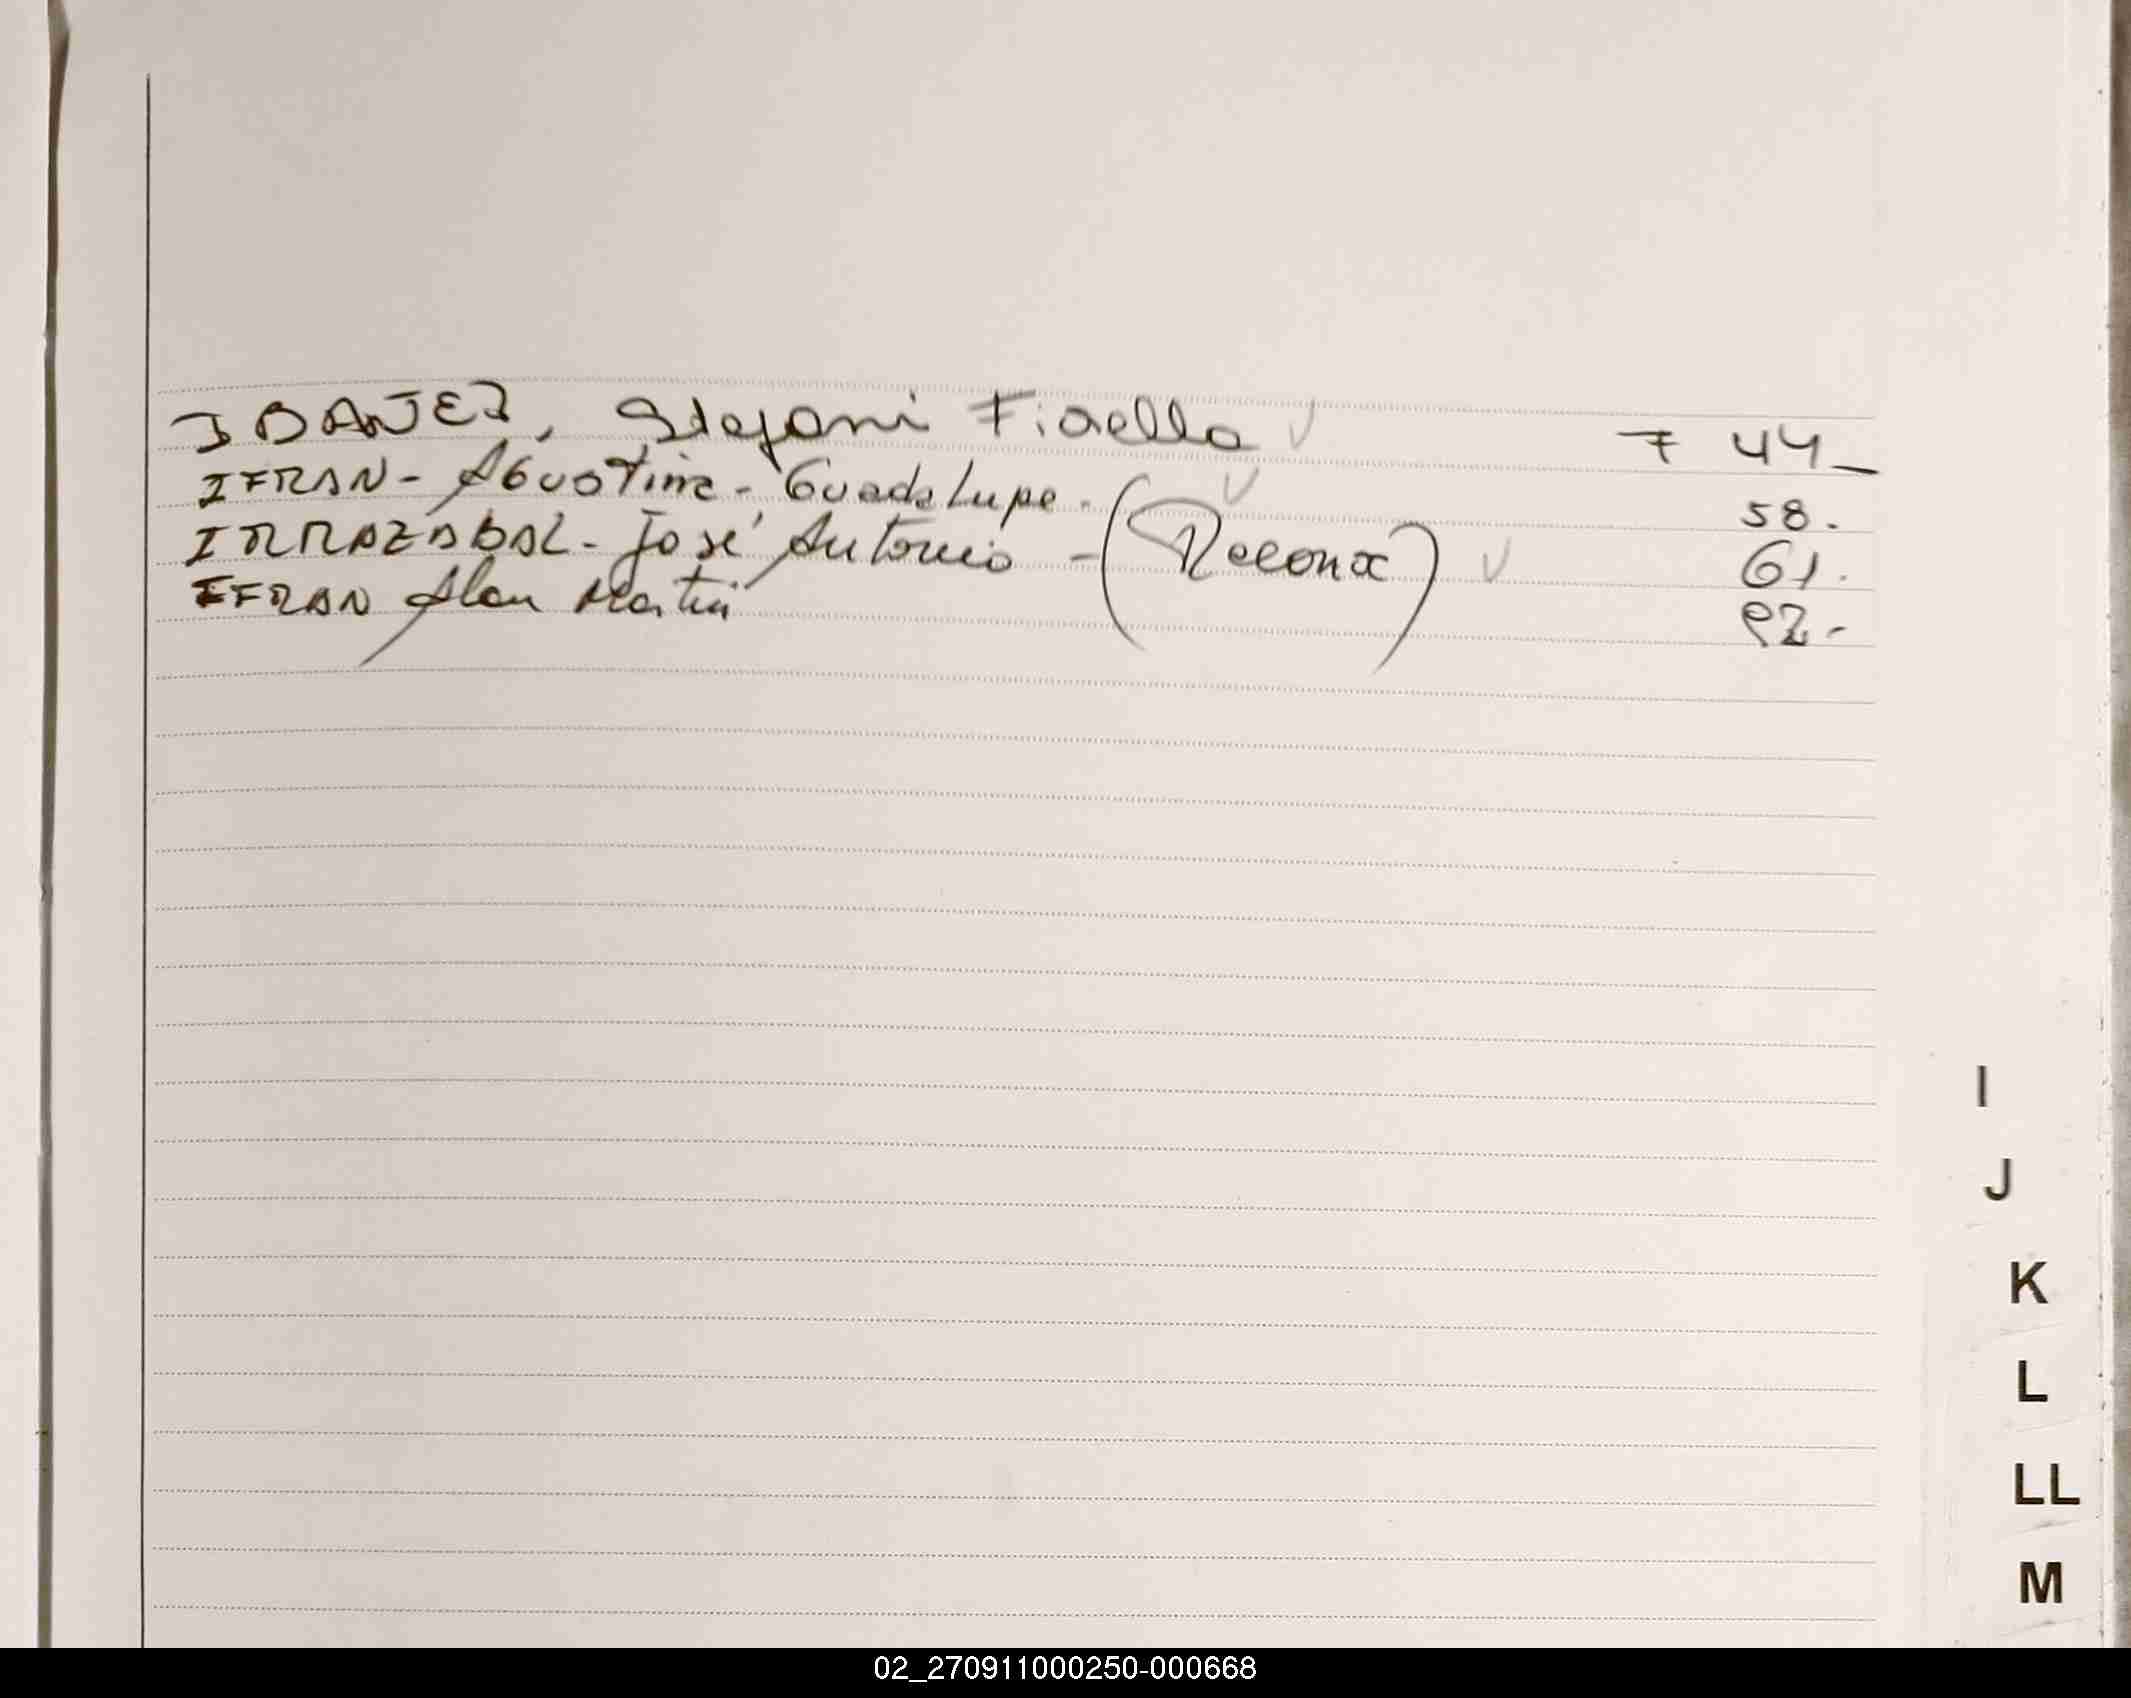 IBAÑEZ, Stefani Fiorella F 44_
IFRAN - AGUSTINA - Guadalupe - 58.
IRRAZABAL - José Antonio - (Recono) 61.
IFRAN Alan Martin 92.-
I
J
K
L
LL
M
02_270911000250-000668